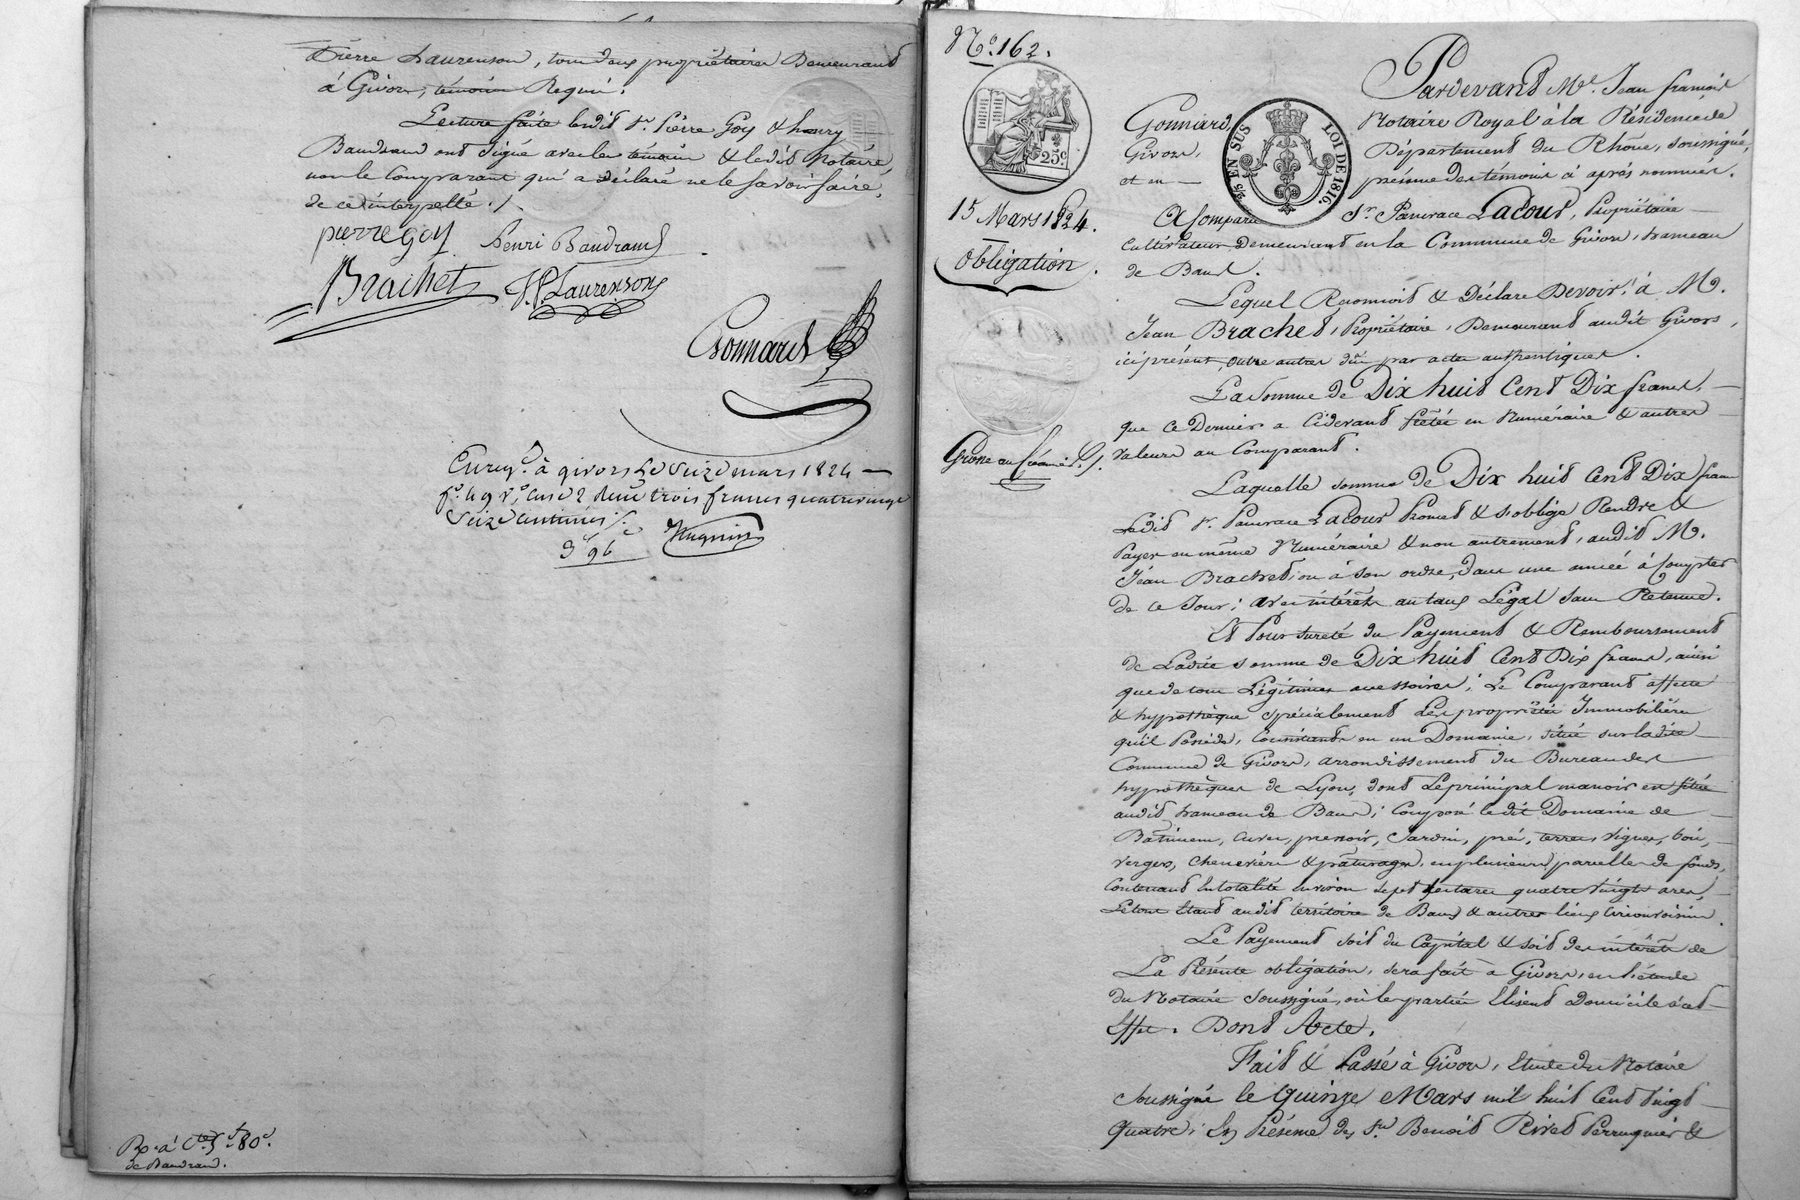 Pierre Laurenson, tous deux propriétaires Demeurant
à Givors, témoins Requis.
Lecture faite ledit Sr. Pierre Goy & henry
Baudrand ont signé avec les témoins & ledit Notaire,
non le Comparant qui a déclaré ne le savoir faire,
de ce interpellé ./.
pierre goy Henri Baudrand
Brachet J.P. Laurenson
Gonnard
Enregé. à givors Le Seize mars 1824
fo. 49 Vo. case 2 Reçu trois francs quatrevingt
Seize centimes ./.
3f 96c
Rx. à 5f 80c.
de Baudrand.
No. 162.
25c.
15 Mars 1824.
Obligation.
Grosse au Créancier
Pardevant Me. Jean françois
Gonnard, Notaire Royal à la Résidence de
Givors, Département du Rhône, soussigné,
et en présence des témoins ci après nommés.
EN SUS LOI DE 1816.
A Comparu Sr. Pancrace Lacour, Propriétaire
Cultivateur Demeurant en la Commune de Givors, hameau
de Bans.
Lequel Reconnoit & Déclare Devoir à M.
Jean Brachet, Propriétaire, Demeurant audit Givors,
ici présent, outre autres dûs par actes authentiques.
La Somme de Dix huit Cent Dix francs,
que ce Dernier a Cidevant Prêtée en Numéraire & autres
valeurs au Comparant.
Laquelle somme de Dix huit Cent Dix francs
Ledit Sr. Pancrace Lacour Promet & s'oblige Rendre &
Payer en même Numéraire & non autrement, audit M.
Jean Brachet, ou à son ordre, dans une année à Compter
de ce Jour; avec intérêts au taux Légal sans Retenue.
Et Pour sureté du Payement & Remboursement
de Ladite somme de Dix huit Cent Dix francs, ainsi
que de tous Légitimes accessoires; Le Comparant affecte
& hypothèque spécialement Les propriétés Immobilières
qu'il Possède, Consistants en un Domaine, situé sur ladite
Commune de Givors, arrondissement du Bureau des
hypothèques de Lyon, dont Le principal manoir en situé
audit hameau de Bans; Composé ledit Domaine de
Bâtimens, Cuves, pressoir, Jardin, pré, terres, vignes, bois,
verger, chenevière & pâturages, en plusieurs parcelles de fonds,
Contenant En totalité Environ Sept hectares quatre vingts ares,
Le tout Etant audit territoire de Bans & autres lieux circonvoisins.
Le Payement soit du Capital & soit des intérêts de
La Présente obligation, sera fait à Givors, en l'étude
du Notaire soussigné, où les parties Elisent Domicile à cet
Effet. Dont Acte.
Fait & Passé à Givors, Etude du Notaire
soussigné le Quinze Mars mil huit Cent Vingt
Quatre; En Présence des Srs. Benoit Rivet Perruquier &